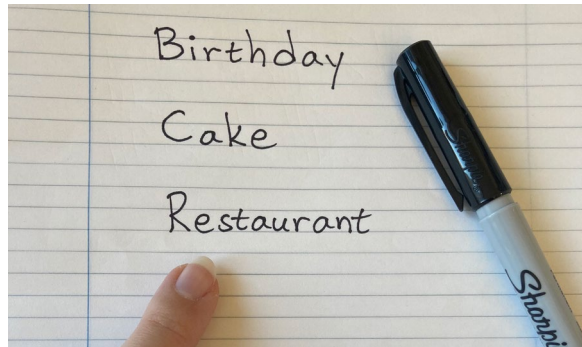 Birthday
Cake
Restaurant
Sharpie
Sharpi